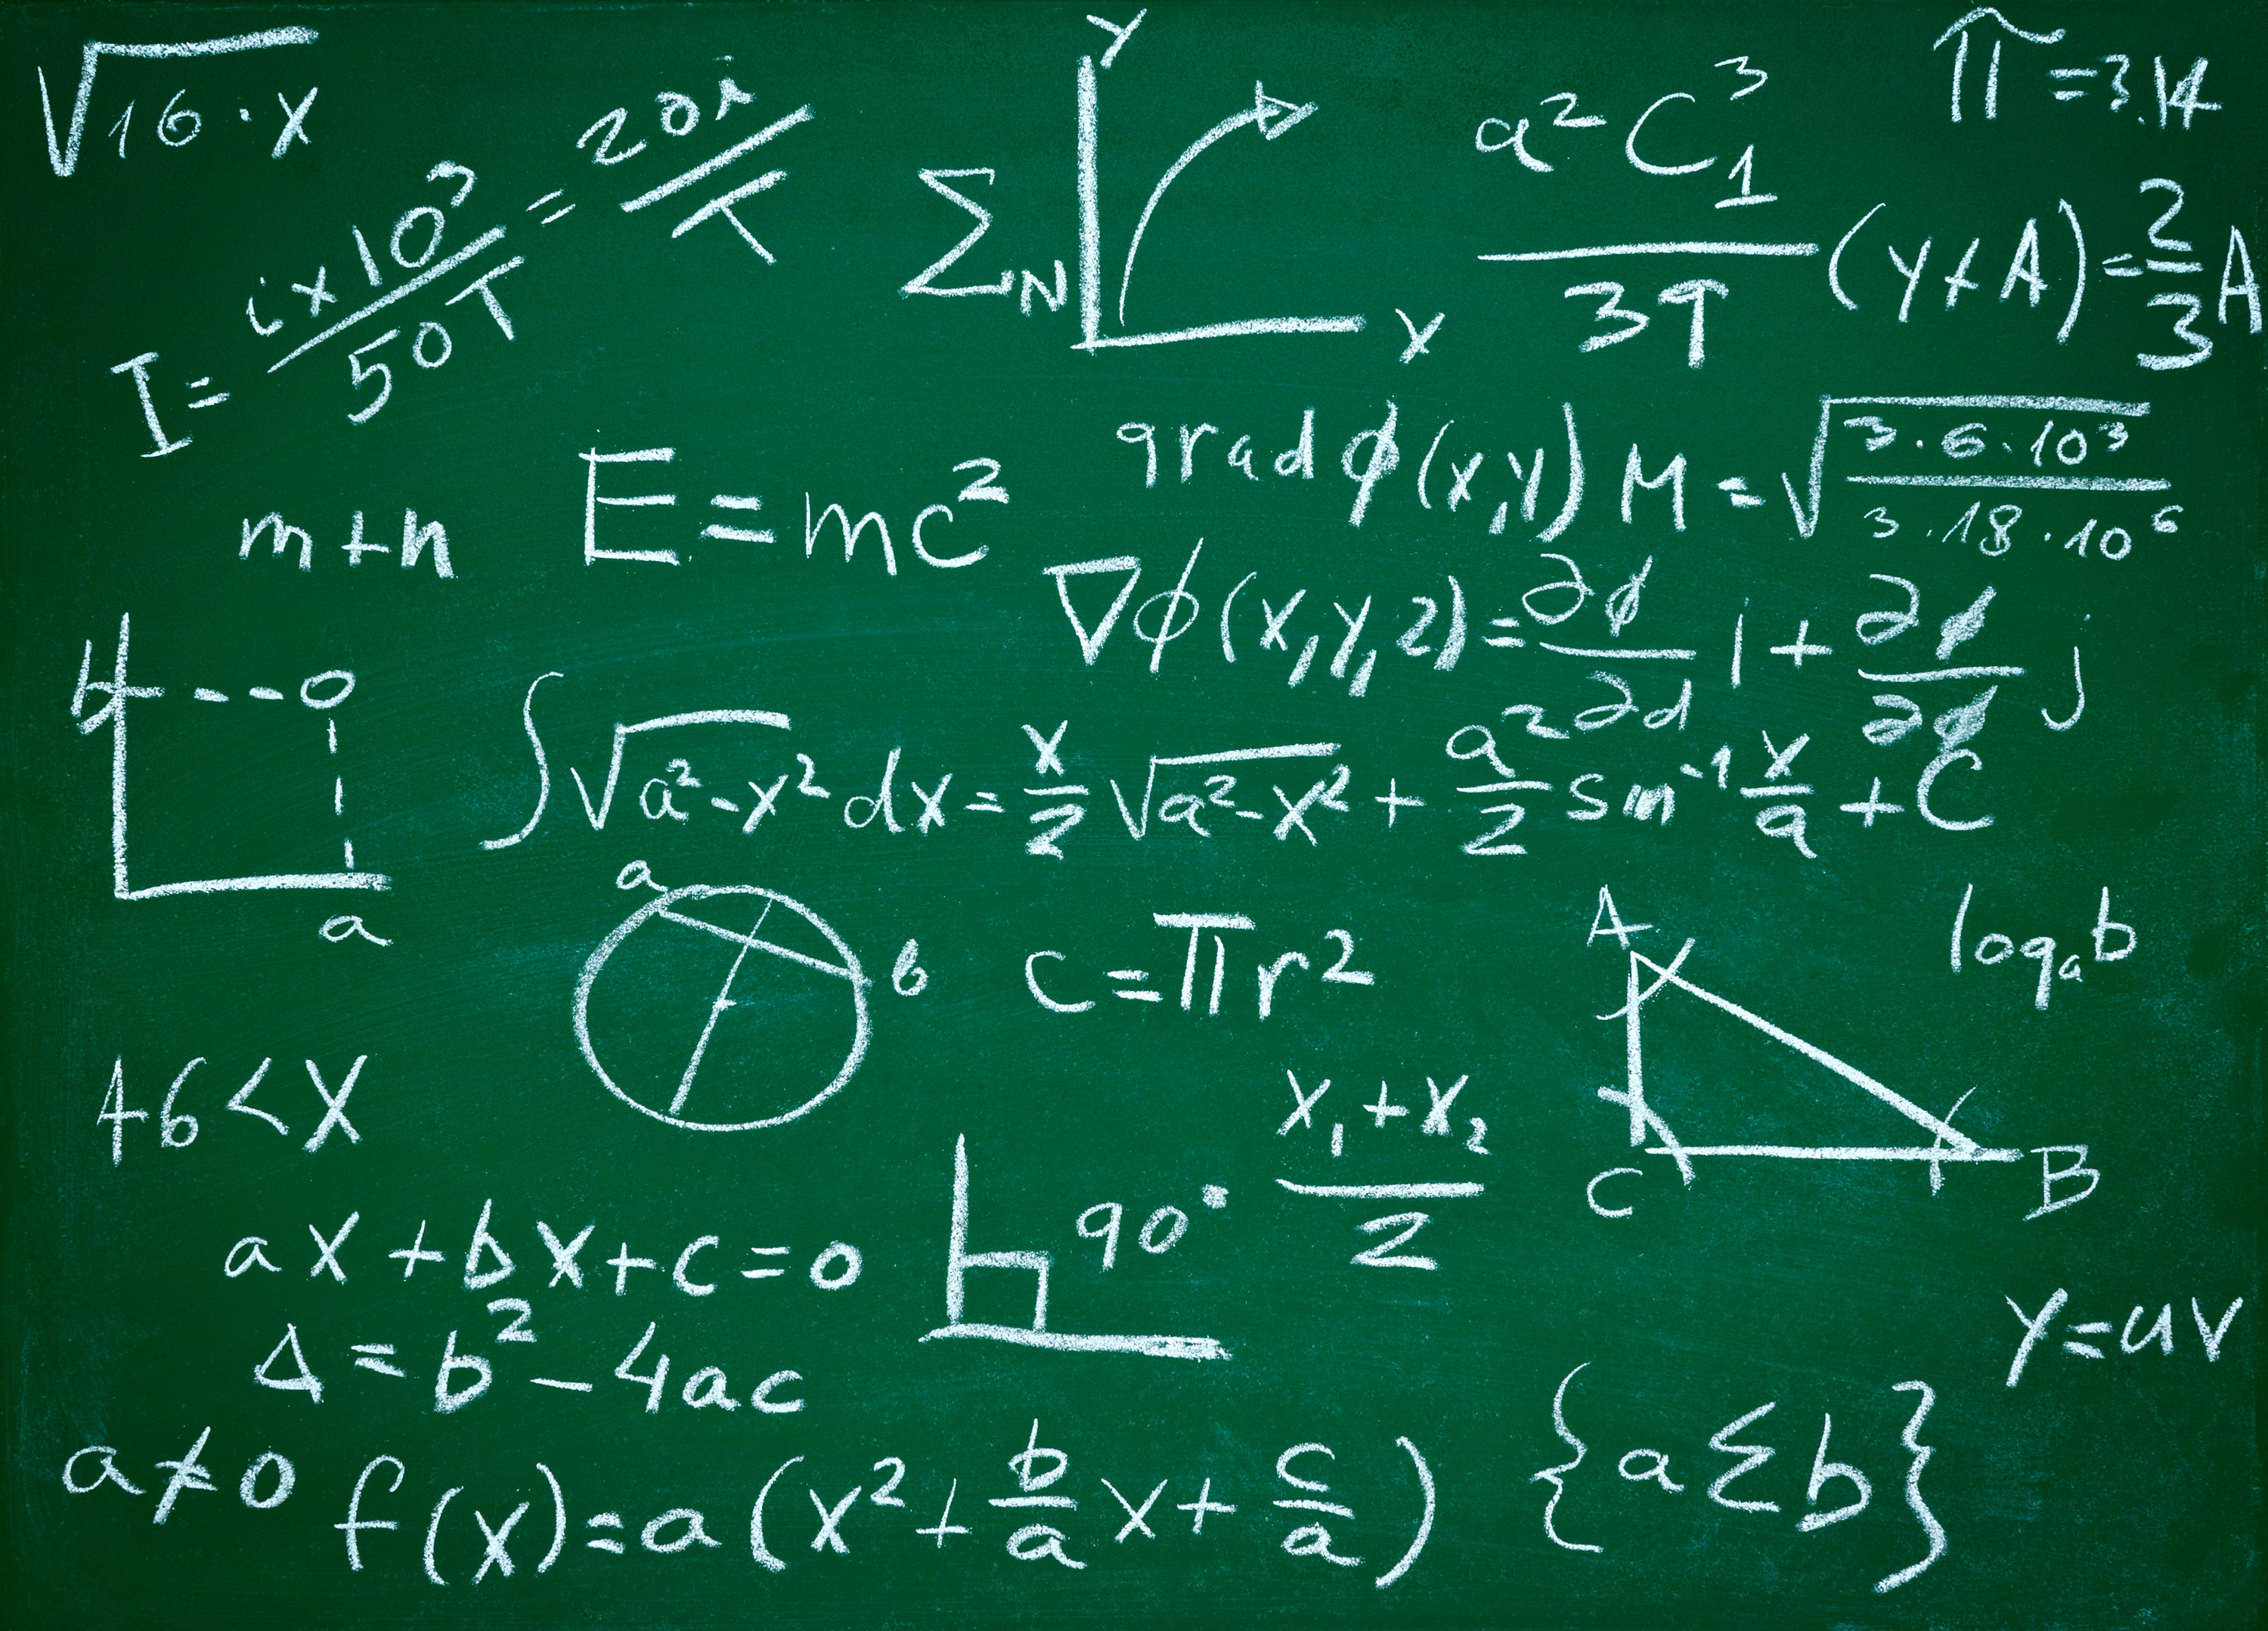 √16·x
I = i×10³/50T = 20i/T
Σ_N
Y
X
a²C₁³/3T (y+A) = 2/3 A
π = 3.14
m+n
E = mc²
grad ϕ(x,y) M = √(3·6·10³/3·18·10⁶)
∇ϕ(x,y,2) = ∂ϕ/∂d 1 + ∂ϕ/∂ϕ j
b
a
∫√a²-x² dx = x/2 √a²-x² + a²/2 sin⁻¹ x/a + C
a
b
c = πr²
A
C
B
logₐb
46<X
x₁+x₂/2
90°
ax+bx+c=0
Δ = b²-4ac
y=uv
a≠0
f(x)=a(x²+b/a x+c/a)
{a Σ b}